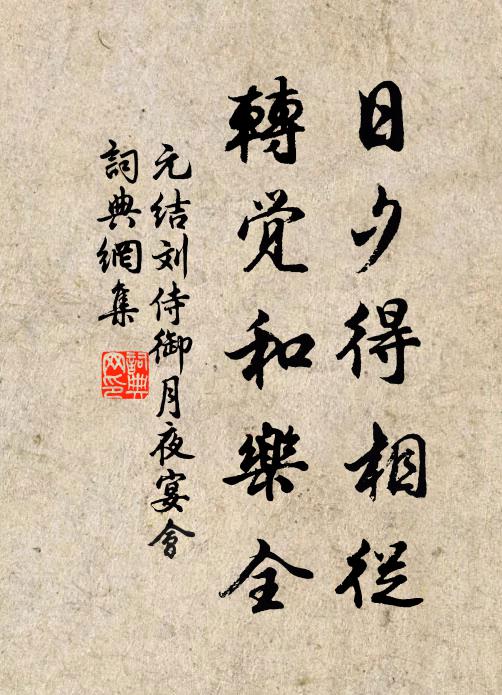 日夕得相從
轉覺和樂全
元结刘侍御月夜宴會
詞典網集
詞典
网印